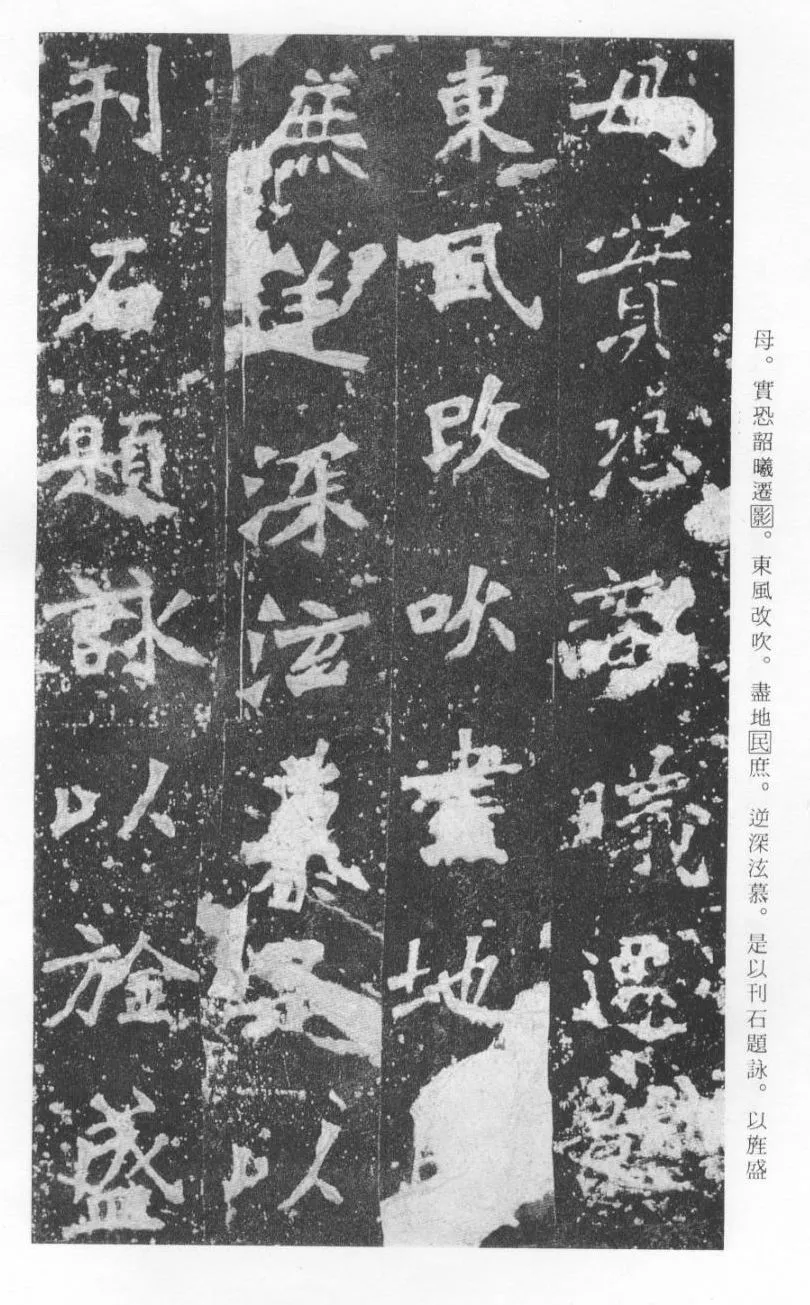 母。實恐韶曦遷影。東風改吹。盡地民庶。逆深泫慕。是以刊石題詠。以旌盛
母實恐韶曦遷影
東風改吹盡地
庶逆深泫慕是以
刊石題詠以旌盛